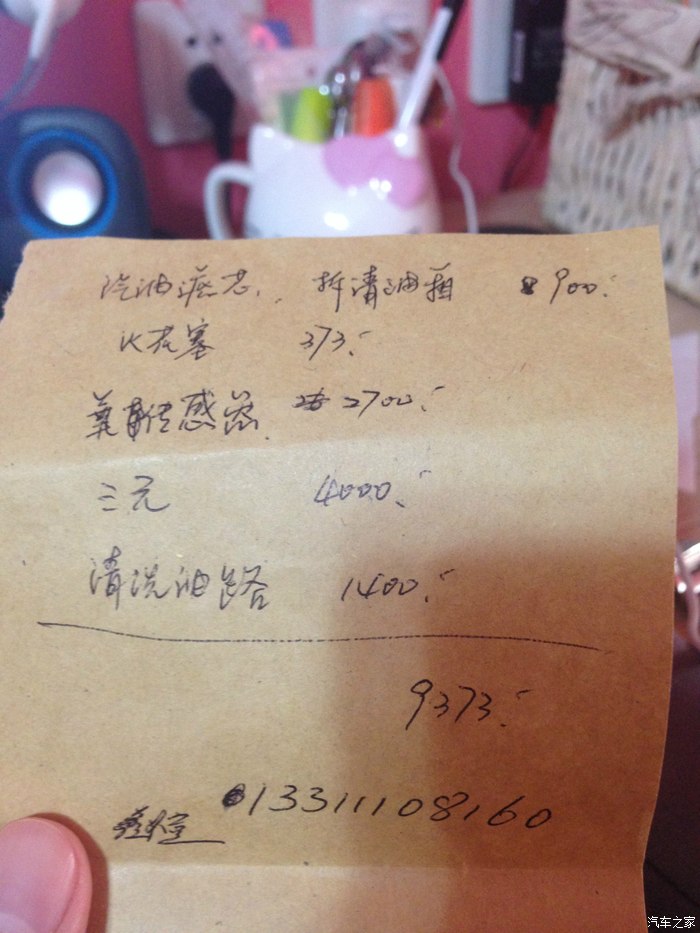 汽油滤芯、拆清油箱 900.-
火花塞 373.-
氧传感器 2700.-
三元 4000.-
清洗油路 1400.-
9373.-
13311108160
汽车之家